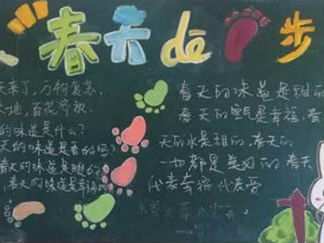 春天dē步
天来了，万物复苏
大地，百花齐放
的味道是什么？
天的味道是香的吗？
春天的味道是甜的
春天的味道是幸福的
春天的味道是甜的
春天的 是幸福，春
天的水是甜的，春天的
一切都是美好的春天
代表幸福代表爱